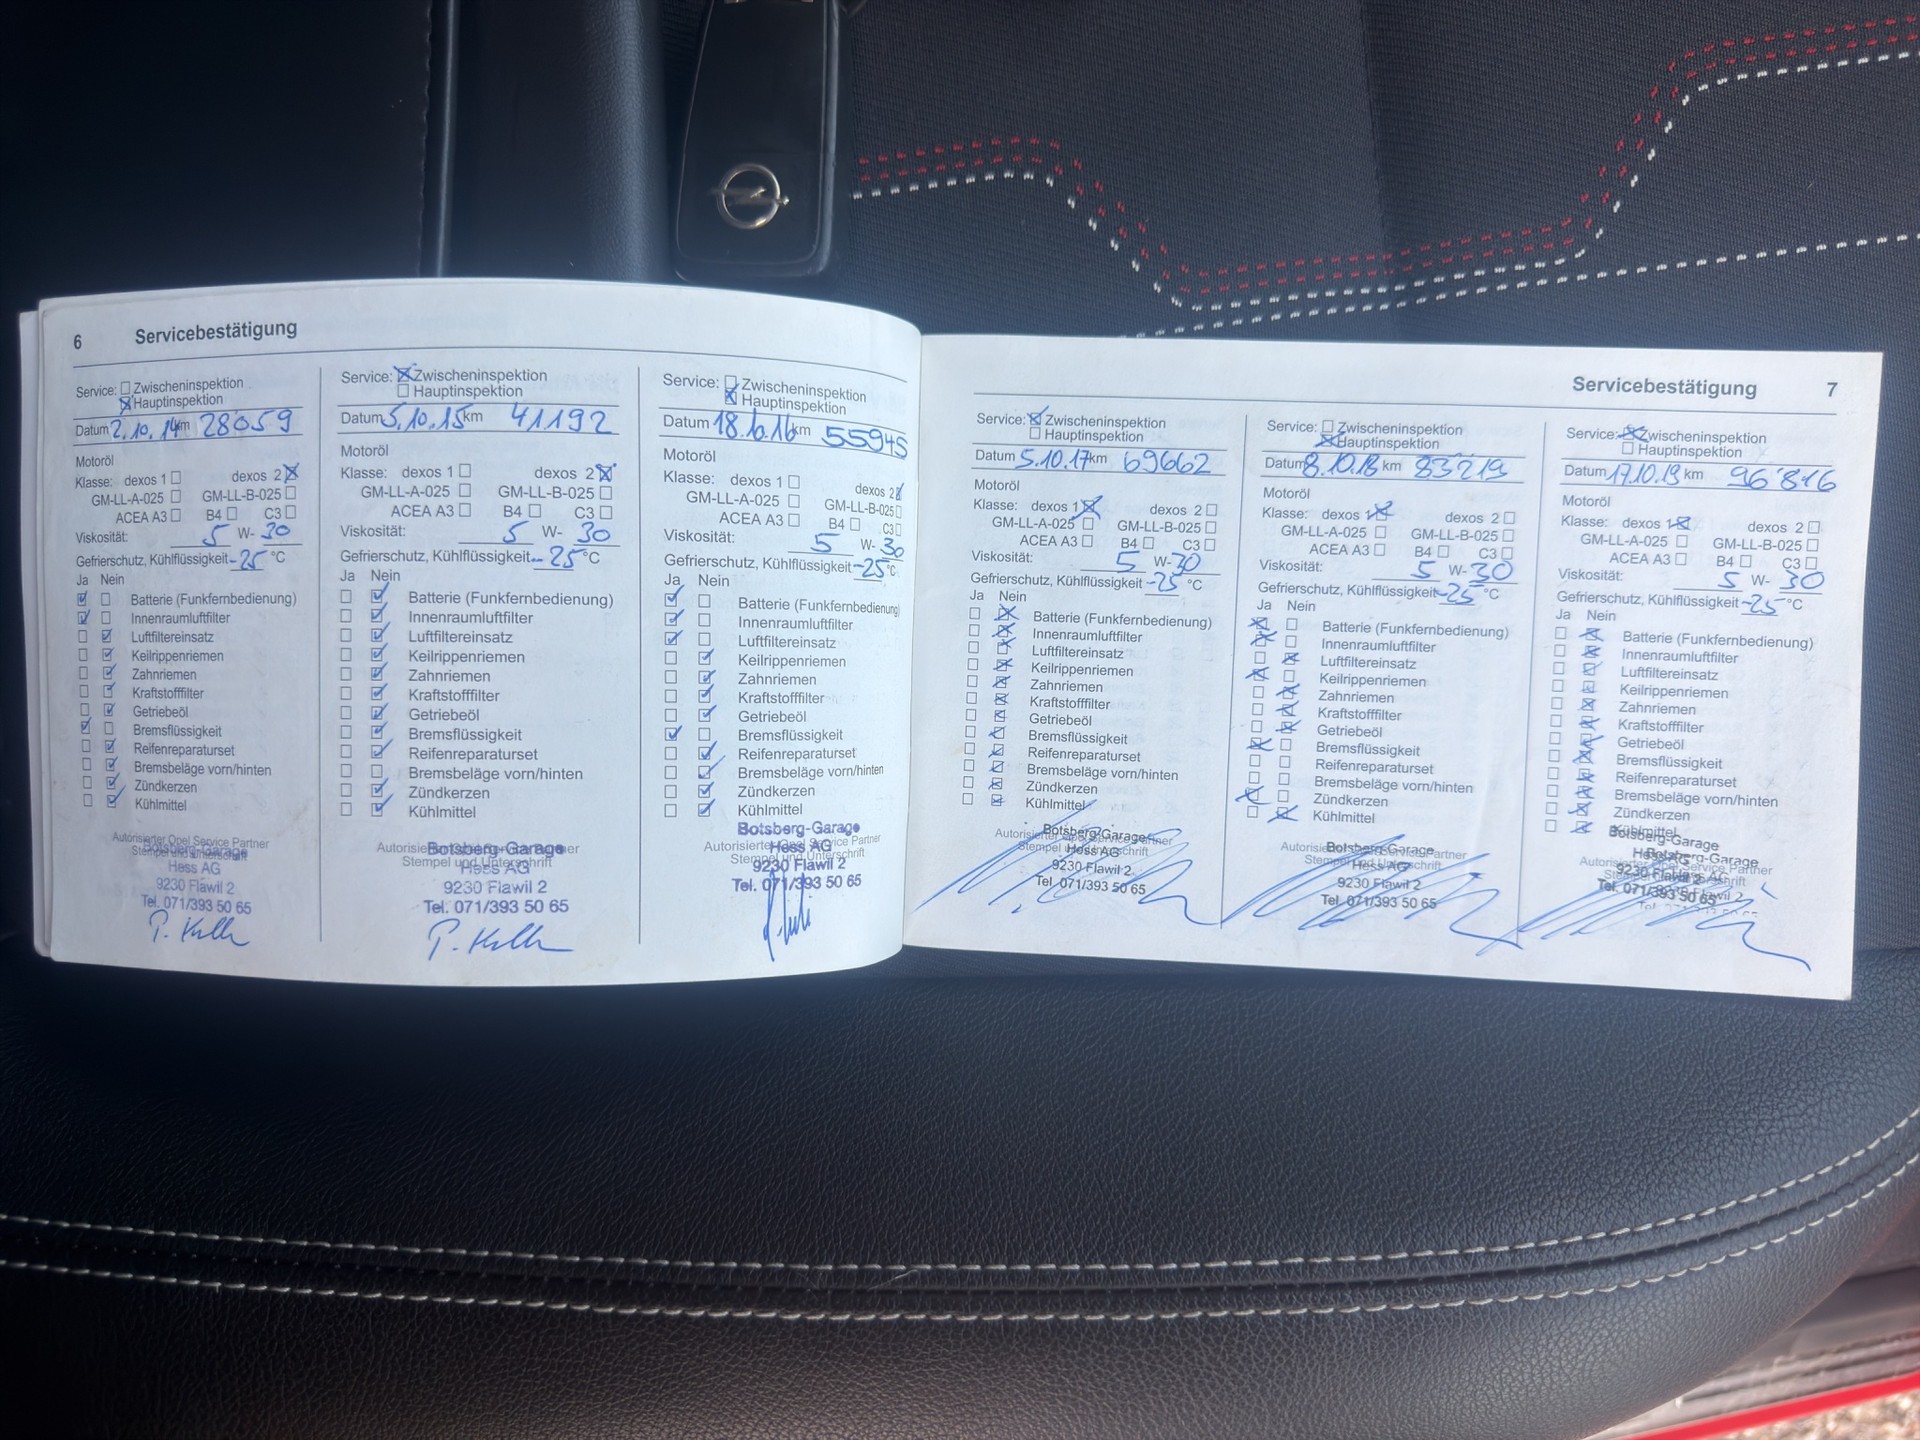 6 Servicebestätigung
Service: Zwischeninspektion
Hauptinspektion
Datum 2.10.14 km 28059
Motoröl
Klasse: dexos 1 dexos 2
GM-LL-A-025 GM-LL-B-025
ACEA A3 B4 C3
Viskosität: 5 W-30
Gefrierschutz, Kühlflüssigkeit -25 °C
Ja Nein
Batterie (Funkfernbedienung)
Innenraumluftfilter
Luftfiltereinsatz
Keilrippenriemen
Zahnriemen
Kraftstofffilter
Getriebeöl
Bremsflüssigkeit
Reifenreparaturset
Bremsbeläge vorn/hinten
Zündkerzen
Kühlmittel
Autorisierter Opel Service Partner
Stempel und Unterschrift
Botsberg-Garage
Hess AG
9230 Flawil 2
Tel. 071/393 50 65
Service: Zwischeninspektion
Hauptinspektion
Datum 5.10.15 km 41192
Motoröl
Klasse: dexos 1 dexos 2
GM-LL-A-025 GM-LL-B-025
ACEA A3 B4 C3
Viskosität: 5 W-30
Gefrierschutz, Kühlflüssigkeit -25 °C
Ja Nein
Batterie (Funkfernbedienung)
Innenraumluftfilter
Luftfiltereinsatz
Keilrippenriemen
Zahnriemen
Kraftstofffilter
Getriebeöl
Bremsflüssigkeit
Reifenreparaturset
Bremsbeläge vorn/hinten
Zündkerzen
Kühlmittel
Botsberg-Garage
Stempel und Unterschrift
Hess AG
9230 Flawil 2
Tel. 071/393 50 65
Service: Zwischeninspektion
Hauptinspektion
Datum 18.10.16 km 55945
Motoröl
Klasse: dexos 1 dexos 2
GM-LL-A-025 GM-LL-B-025
ACEA A3 B4 C3
Viskosität: 5 W-30
Gefrierschutz, Kühlflüssigkeit -25 °C
Ja Nein
Batterie (Funkfernbedienung)
Innenraumluftfilter
Luftfiltereinsatz
Keilrippenriemen
Zahnriemen
Kraftstofffilter
Getriebeöl
Bremsflüssigkeit
Reifenreparaturset
Bremsbeläge vorn/hinten
Zündkerzen
Kühlmittel
Botsberg-Garage
Hess AG
9230 Flawil 2
Tel. 071/393 50 65
Servicebestätigung 7
Service: Zwischeninspektion
Hauptinspektion
Datum 5.10.17 km 69662
Motoröl
Klasse: dexos 1 dexos 2
GM-LL-A-025 GM-LL-B-025
ACEA A3 B4 C3
Viskosität: 5 W-30
Gefrierschutz, Kühlflüssigkeit -25 °C
Ja Nein
Batterie (Funkfernbedienung)
Innenraumluftfilter
Luftfiltereinsatz
Keilrippenriemen
Zahnriemen
Kraftstofffilter
Getriebeöl
Bremsflüssigkeit
Reifenreparaturset
Bremsbeläge vorn/hinten
Zündkerzen
Kühlmittel
Botsberg-Garage
Hess AG
9230 Flawil 2
Tel. 071/393 50 65
Service: Zwischeninspektion
Hauptinspektion
Datum 8.10.18 km 83219
Motoröl
Klasse: dexos 1 dexos 2
GM-LL-A-025 GM-LL-B-025
ACEA A3 B4 C3
Viskosität: 5 W-30
Gefrierschutz, Kühlflüssigkeit -25 °C
Ja Nein
Batterie (Funkfernbedienung)
Innenraumluftfilter
Luftfiltereinsatz
Keilrippenriemen
Zahnriemen
Kraftstofffilter
Getriebeöl
Bremsflüssigkeit
Reifenreparaturset
Bremsbeläge vorn/hinten
Zündkerzen
Kühlmittel
Botsberg-Garage
Hess AG
9230 Flawil 2
Tel. 071/393 50 65
Service: Zwischeninspektion
Hauptinspektion
Datum 17.10.19 km 96'816
Motoröl
Klasse: dexos 1 dexos 2
GM-LL-A-025 GM-LL-B-025
ACEA A3 B4 C3
Viskosität: 5 W-30
Gefrierschutz, Kühlflüssigkeit -25 °C
Ja Nein
Batterie (Funkfernbedienung)
Innenraumluftfilter
Luftfiltereinsatz
Keilrippenriemen
Zahnriemen
Kraftstofffilter
Getriebeöl
Bremsflüssigkeit
Reifenreparaturset
Bremsbeläge vorn/hinten
Zündkerzen
Kühlmittel
Botsberg-Garage
Hess AG
9230 Flawil 2
Tel. 071/393 50 65